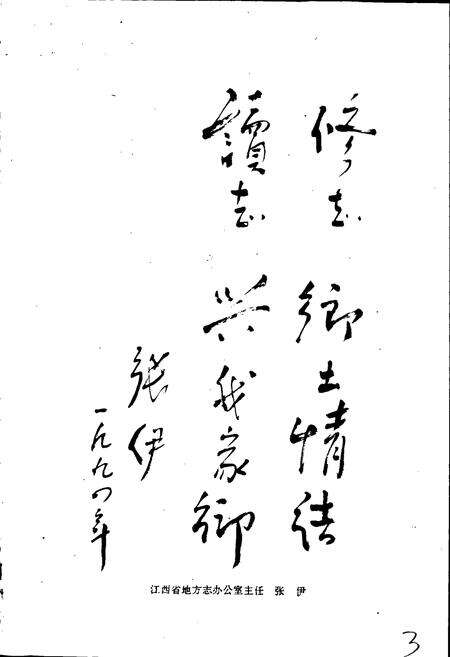 修志 鄉土情結
讀志 興我家鄉
張伊
一九九四年
江西省地方志办公室主任 张 伊
3